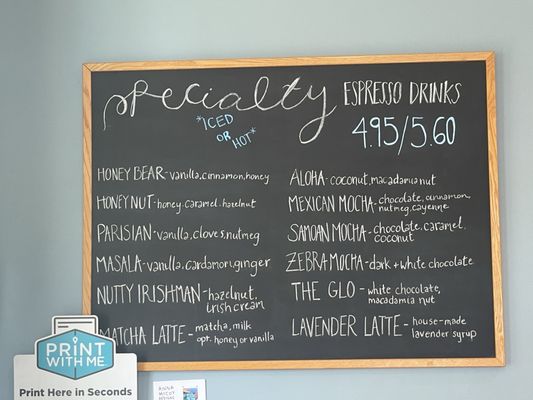 specialty ESPRESSO DRINKS
*ICED
OR
HOT*
4.95/5.60
HONEY BEAR-vanilla,cinnamon,honey
HONEYNUT-honey.caramel.hazelnut
PARISIAN-vanilla,cloves,nutmeg
MASALA-vanilla,cardamom,ginger
NUTTY IRISHMAN-hazelnut,
irish cream
MATCHA LATTE-matcha, milk
opt. honey or vanilla
ALOHA-coconut,macadamia nut
MEXICAN MOCHA-chocolate, cinnamon,
nutmeg,cayenne
SAMOAN MOCHA-chocolate,caramel,
coconut
ZEBRA MOCHA-dark + white chocolate
THE GLO-white chocolate,
macadamia nut
LAVENDER LATTE-house-made
lavender syrup
PRINT
WITH ME
Print Here in Seconds